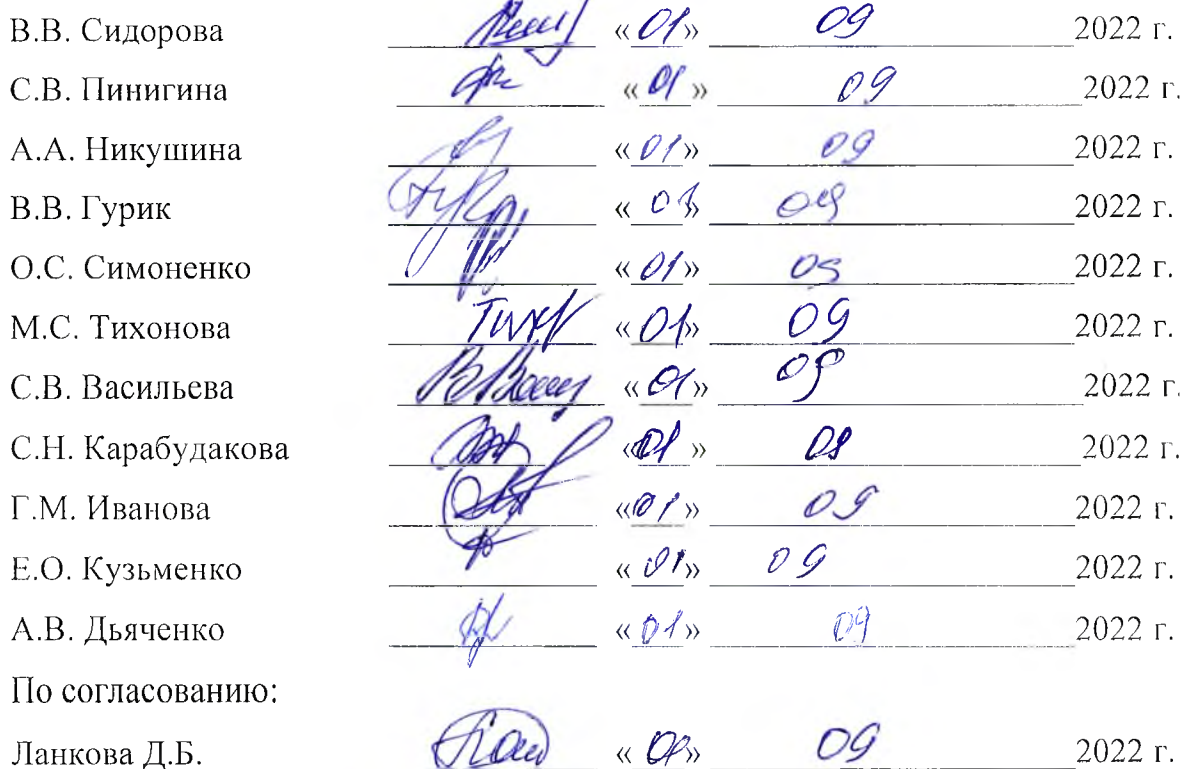 В.В. Сидорова «01» 09 2022 г.
С.В. Пинигина «01» 09 2022 г.
А.А. Никушина «01» 09 2022 г.
В.В. Гурик « » 09 2022 г.
О.С. Симоненко «01» 09 2022 г.
М.С. Тихонова «01» 09 2022 г.
С.В. Васильева «01» 09 2022 г.
С.Н. Карабудакова «01» 09 2022 г.
Г.М. Иванова «01» 09 2022 г.
Е.О. Кузьменко «01» 09 2022 г.
А.В. Дьяченко «01» 09 2022 г.
По согласованию:
Ланкова Д.Б. « » 09 2022 г.